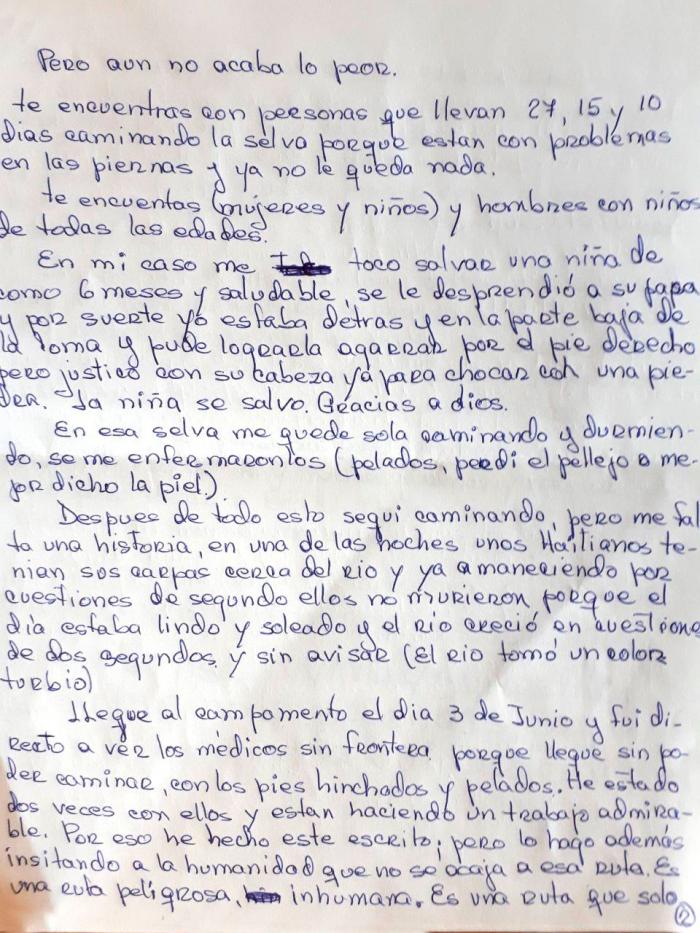 Pero aun no acaba lo peor.
te encuentras con personas que llevan 27, 15 y 10
dias caminando la selva porque estan con problemas
en las piernas y ya no le queda nada.
te encuentas (mujeres y niños) y hombres con niños
de todas las edades.
En mi caso me toco salvar una niña de
como 6 meses y saludable, se le desprendió a su papa
y por suerte yo estaba detras y en la parte baja de
la loma y pude lograrla agarrar por el pie derecho
pero justico con su cabeza ya para chocar con una pie-
dra. La niña se salvo. Gracias a dios.
En esa selva me quede sola caminando y durmien-
do, se me enfermaron los (pelados, perdi el pellejo o me-
jor dicho la piel.)
Despues de todo esto segui caminando, pero me fal
ta una historia, en una de las noches unos Haitianos te-
nian sus carpas cerca del rio y ya amaneciendo por
cuestiones de segundo ellos no murieron porque el
dia estaba lindo y soleado y el rio creció en cuestione
de dos segundos y sin avisar (El rio tomó un color
turbio)
Llegue al campamento el dia 3 de Junio y fui di-
recto a ver los médicos sin frontera porque llegue sin po-
der caminar, con los pies hinchados y pelados. He estado
dos veces con ellos y estan haciendo un trabajo admira-
ble. Por eso he hecho este escrito; pero lo hago además
insitando a la humanidad que no se acaja a esa ruta. Es
una ruta peligrosa, inhumana. Es una ruta que solo
2